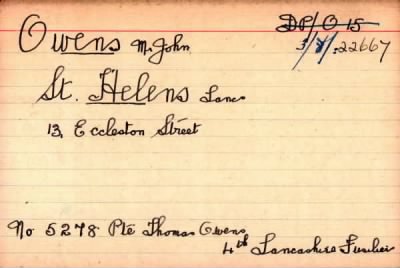 Owens Mr John
DP/O 15
3/8/.22667
St. Helens Lancs
13, Eccleston Street
No 5278 Pte Thomas Owens
4th Lancashire Fusilier